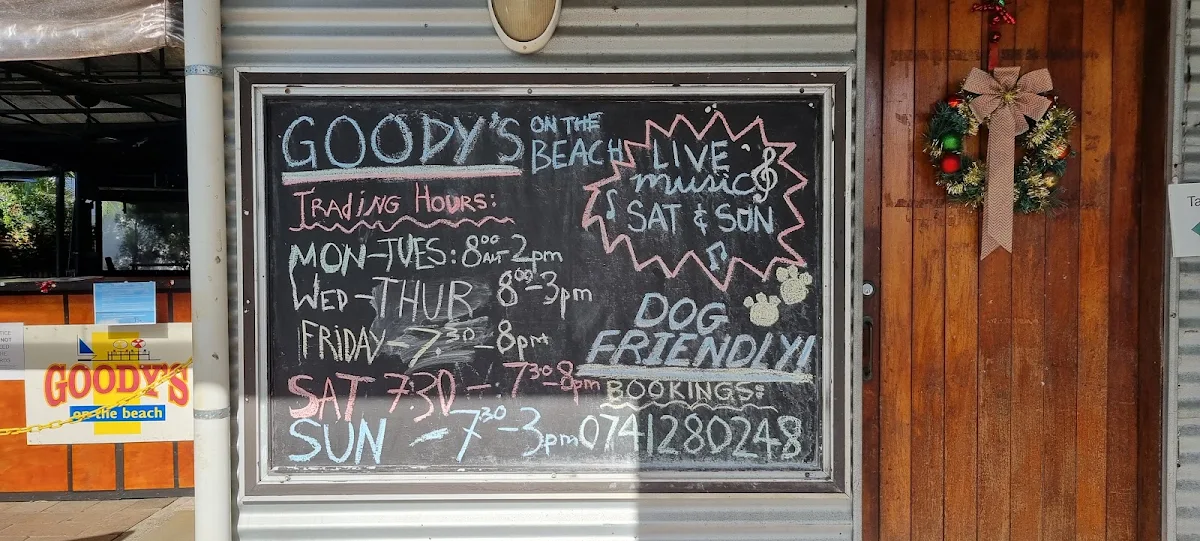 GOODY'S ON THE BEACH
TRADING HOURS:
MON-TUES: 8⁰⁰AM-2pm
WED-THUR 8⁰⁰-3pm
FRIDAY-7.³⁰-8pm
SAT 7:30-7³⁰-8pm
SUN -7³⁰-3pm
LIVE
music
SAT & SUN
DOG
FRIENDLY!
BOOKINGS:
0741280248
GOODY'S
on the beach
Ta